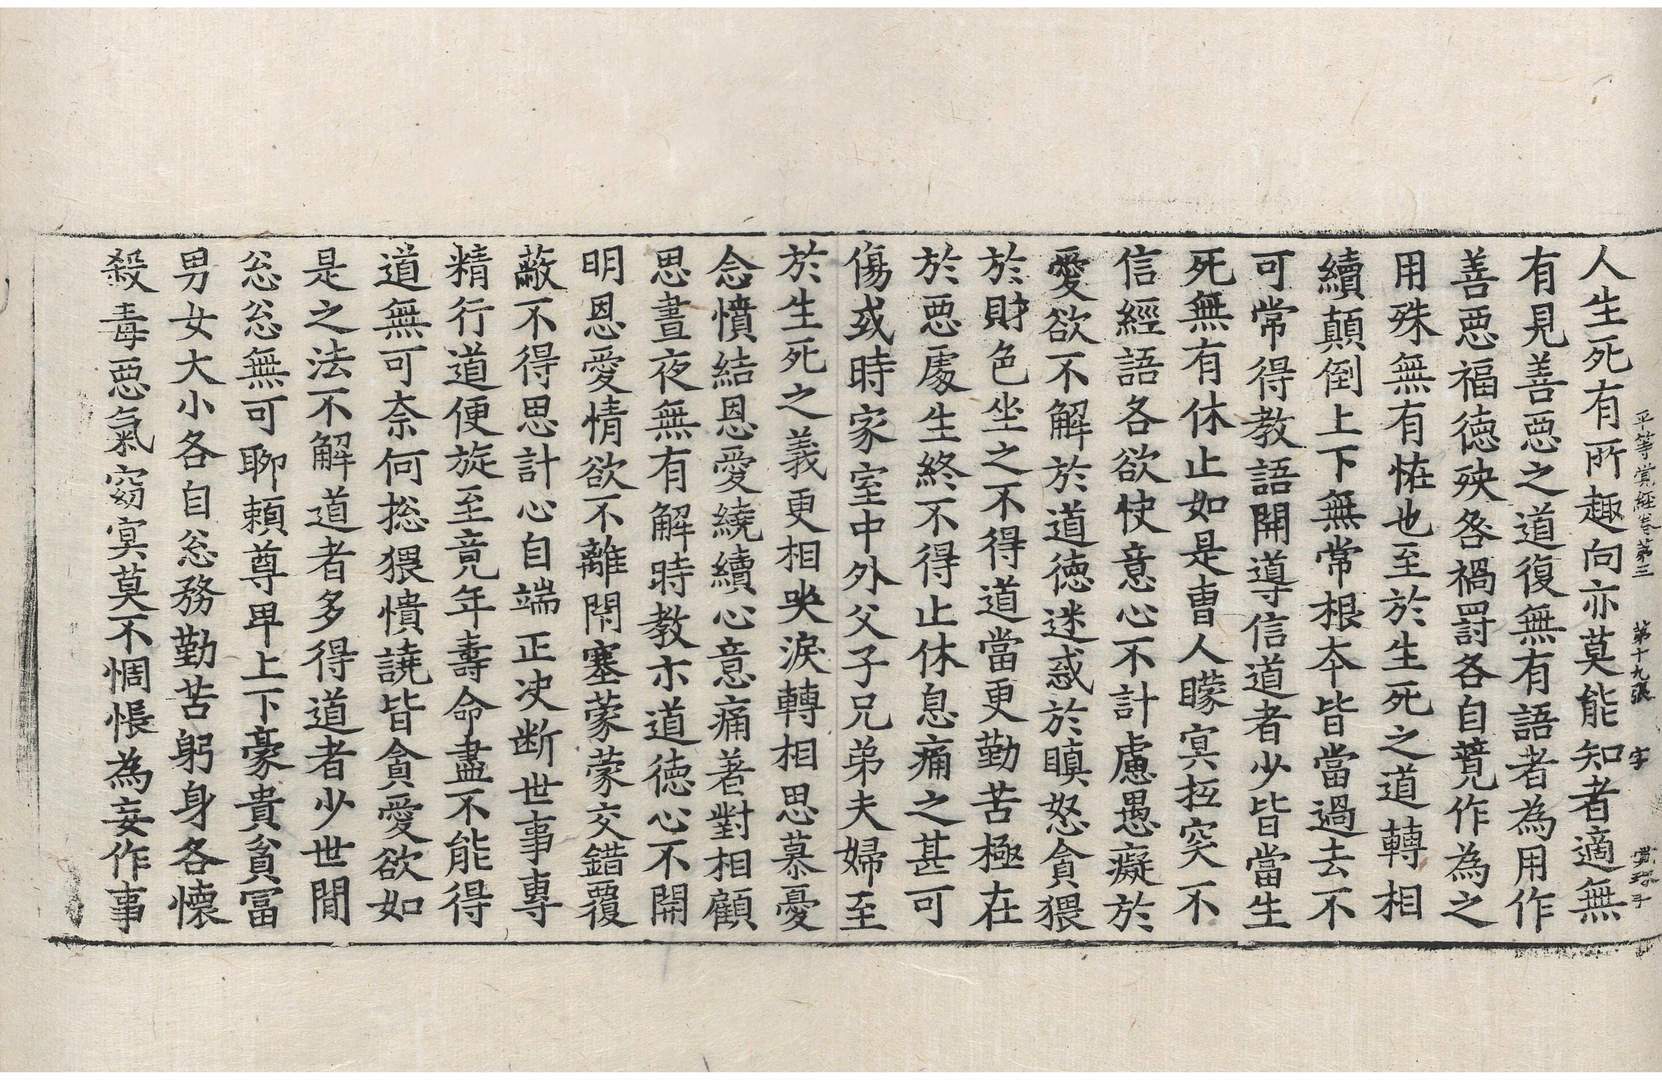 平等覺經卷第三 第十九張 字
人生死有所趣向亦莫能知者適無
有見善惡之道復無有語者為用作
善惡福德殃咎禍罰各自競作為之
用殊無有恠也至於生死之道轉相
續顛倒上下無常根夲皆當過去不
可常得教語開導信道者少皆當生
死無有休止如是曹人矇冥抵突不
信經語各欲快意心不計慮愚癡於
愛欲不解於道德迷惑於瞋怒貪猥
於財色坐之不得道當更勤苦極在
於惡處生終不得止休息痛之甚可
傷或時家室中外父子兄弟夫婦至
於生死之義更相哭淚轉相思慕憂
念憤結恩愛繞續心意痛著對相顧
思晝夜無有解時教示道德心不開
明恩愛情欲不離閇塞蒙蒙交錯覆
蔽不得思計心自端正決断世事專
精行道便旋至竟年壽命盡不能得
道無可奈何捴猥憒譊皆貪愛欲如
是之法不解道者多得道者少世間
忩忩無可聊賴尊卑上下豪貴貧富
男女大小各自忩務勤苦躬身各懷
殺毒惡氣窈冥莫不惆悵為妄作事